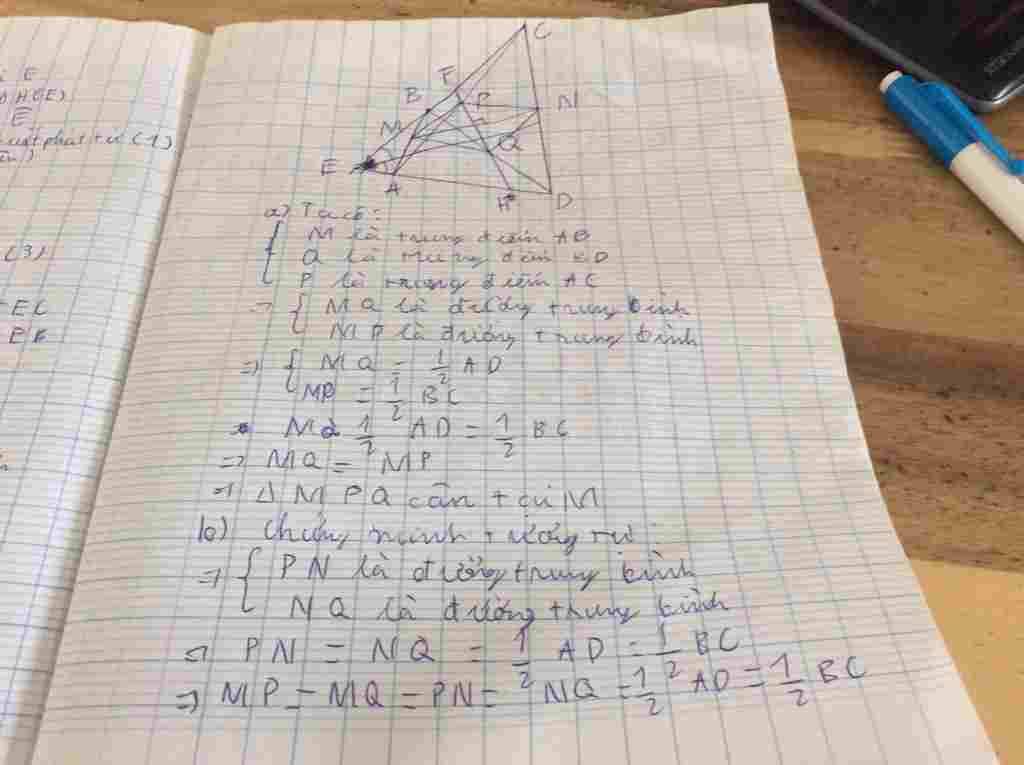 E
HGE)
E
(1)
(3)
EC
EF
C
F
B
P
N
M
Q
E
A
H
D
a) Ta có:
M là trung điểm AB
Q là trung điểm BD
P là trung điểm AC
=> MQ là đường trung bình
MP là đường trung bình
=> MQ = 1/2 AD
MP = 1/2 BC
MQ 1/2 AD = 1/2 BC
=> MQ = MP
=> Δ MPQ cân tại M
b) Chứng minh tương tự:
=> PN là đường trung bình
NQ là đường trung bình
=> PN = NQ = 1/2 AD = 1/2 BC
=> MP = MQ = PN = NQ = 1/2 AD = 1/2 BC